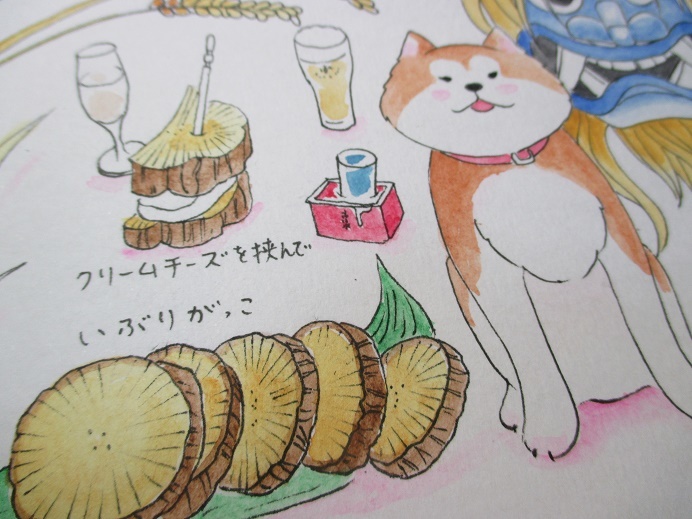 クリームチーズを挟んで
いぶりがっこ